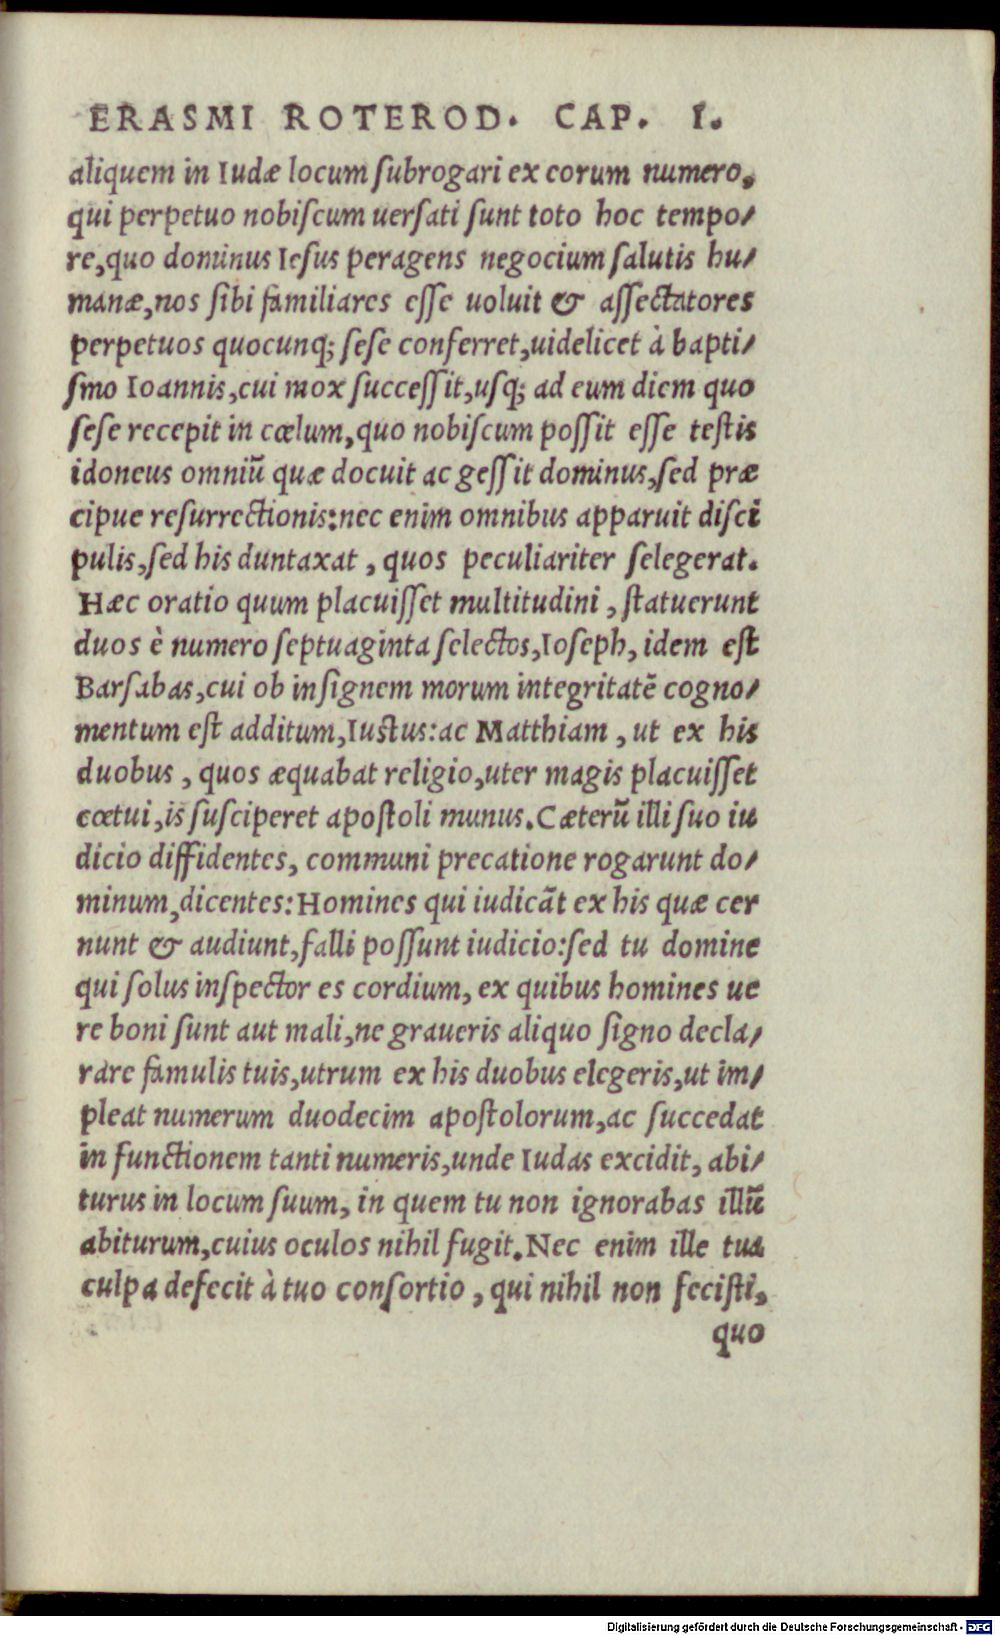 ERASMI ROTEROD. CAP. I.
aliquem in Iudæ locum ſubrogari ex eorum numero,
qui perpetuo nobiſcum uerſati ſunt toto hoc tempo/
re, quo dominus Ieſus peragens negocium ſalutis hu/
manæ, nos ſibi familiares eſſe uoluit & aſſectatores
perpetuos quocunq; ſeſe conferret, uidelicet à bapti/
ſmo Ioannis, cui mox ſucceſſit, uſq; ad eum diem quo
ſeſe recepit in cœlum, quo nobiſcum poſſit eſſe teſtis
idoneus omniũ quæ docuit ac geſſit dominus, ſed præ
cipue reſurrectionis: nec enim omnibus apparuit diſci
pulis, ſed his duntaxat, quos peculiariter ſelegerat.
Hæc oratio quum placuiſſet multitudini, ſtatuerunt
duos è numero ſeptuaginta ſelectos, Ioſeph, idem eſt
Barſabas, cui ob inſignem morum integritatẽ cogno/
mentum eſt additum, Iuſtus: ac Matthiam, ut ex his
duobus, quos æquabat religio, uter magis placuiſſet
cœtui, is ſuſciperet apoſtoli munus. Cæterũ illi ſuo iu
dicio diffidentes, communi precatione rogarunt do/
minum, dicentes: Homines qui iudicãt ex his quæ cer
nunt & audiunt, falli poſſunt iudicio: ſed tu domine
qui ſolus inſpector es cordium, ex quibus homines ue
re boni ſunt aut mali, ne graueris aliquo ſigno decla/
rare famulis tuis, utrum ex his duobus elegeris, ut im/
pleat numerum duodecim apoſtolorum, ac ſuccedat
in functionem tanti numeris, unde Iudas excidit, abi/
turus in locum ſuum, in quem tu non ignorabas illũ
abiturum, cuius oculos nihil fugit. Nec enim ille tua
culpa defecit à tuo conſortio, qui nihil non feciſti,
quo
Digitalisierung gefördert durch die Deutsche Forschungsgemeinschaft - DFG